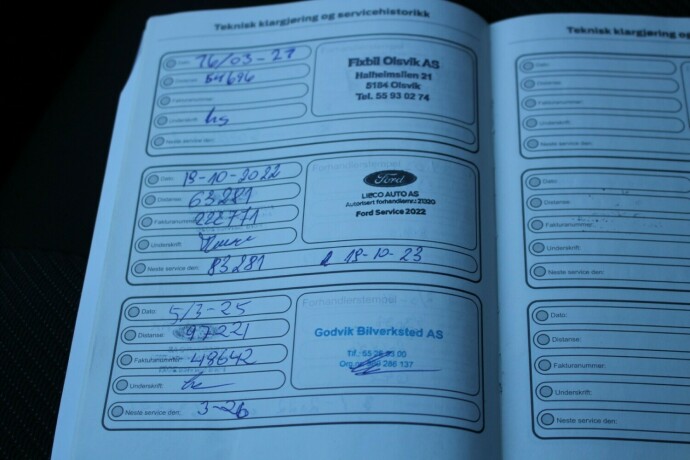 Teknisk klargjøring og servicehistorikk
Dato: 26/03-21
Distanse: 54696
Fakturanummer:
Underskrift:
Neste service den:
Fixbil Olsvik AS
Halheimslien 21
5184 Olsvik
Tel. 55 93 02 74
Dato: 19-10-2022
Distanse: 63281
Fakturanummer: 222771
Underskrift:
Neste service den: 83281 19-10-23
Forhandlerstempel
Ford
LIBCO AUTO AS
Autorisert forhandlernr.: 21320
Ford Service 2022
Dato: 5/3-25
Distanse: 97221
Fakturanummer: 48642
Underskrift:
Neste service den: 3-26
Forhandlerstempel
Godvik Bilverksted AS
Tlf.: 55 26 93 00
286 137
Teknisk klargjøring og
Dato:
Distanse:
Fakturanummer:
Underskrift:
Neste service den:
Dato:
Distanse:
Fakturanummer:
Underskrift:
Neste service den:
Dato:
Distanse:
Fakturanummer:
Underskrift:
Neste service den: